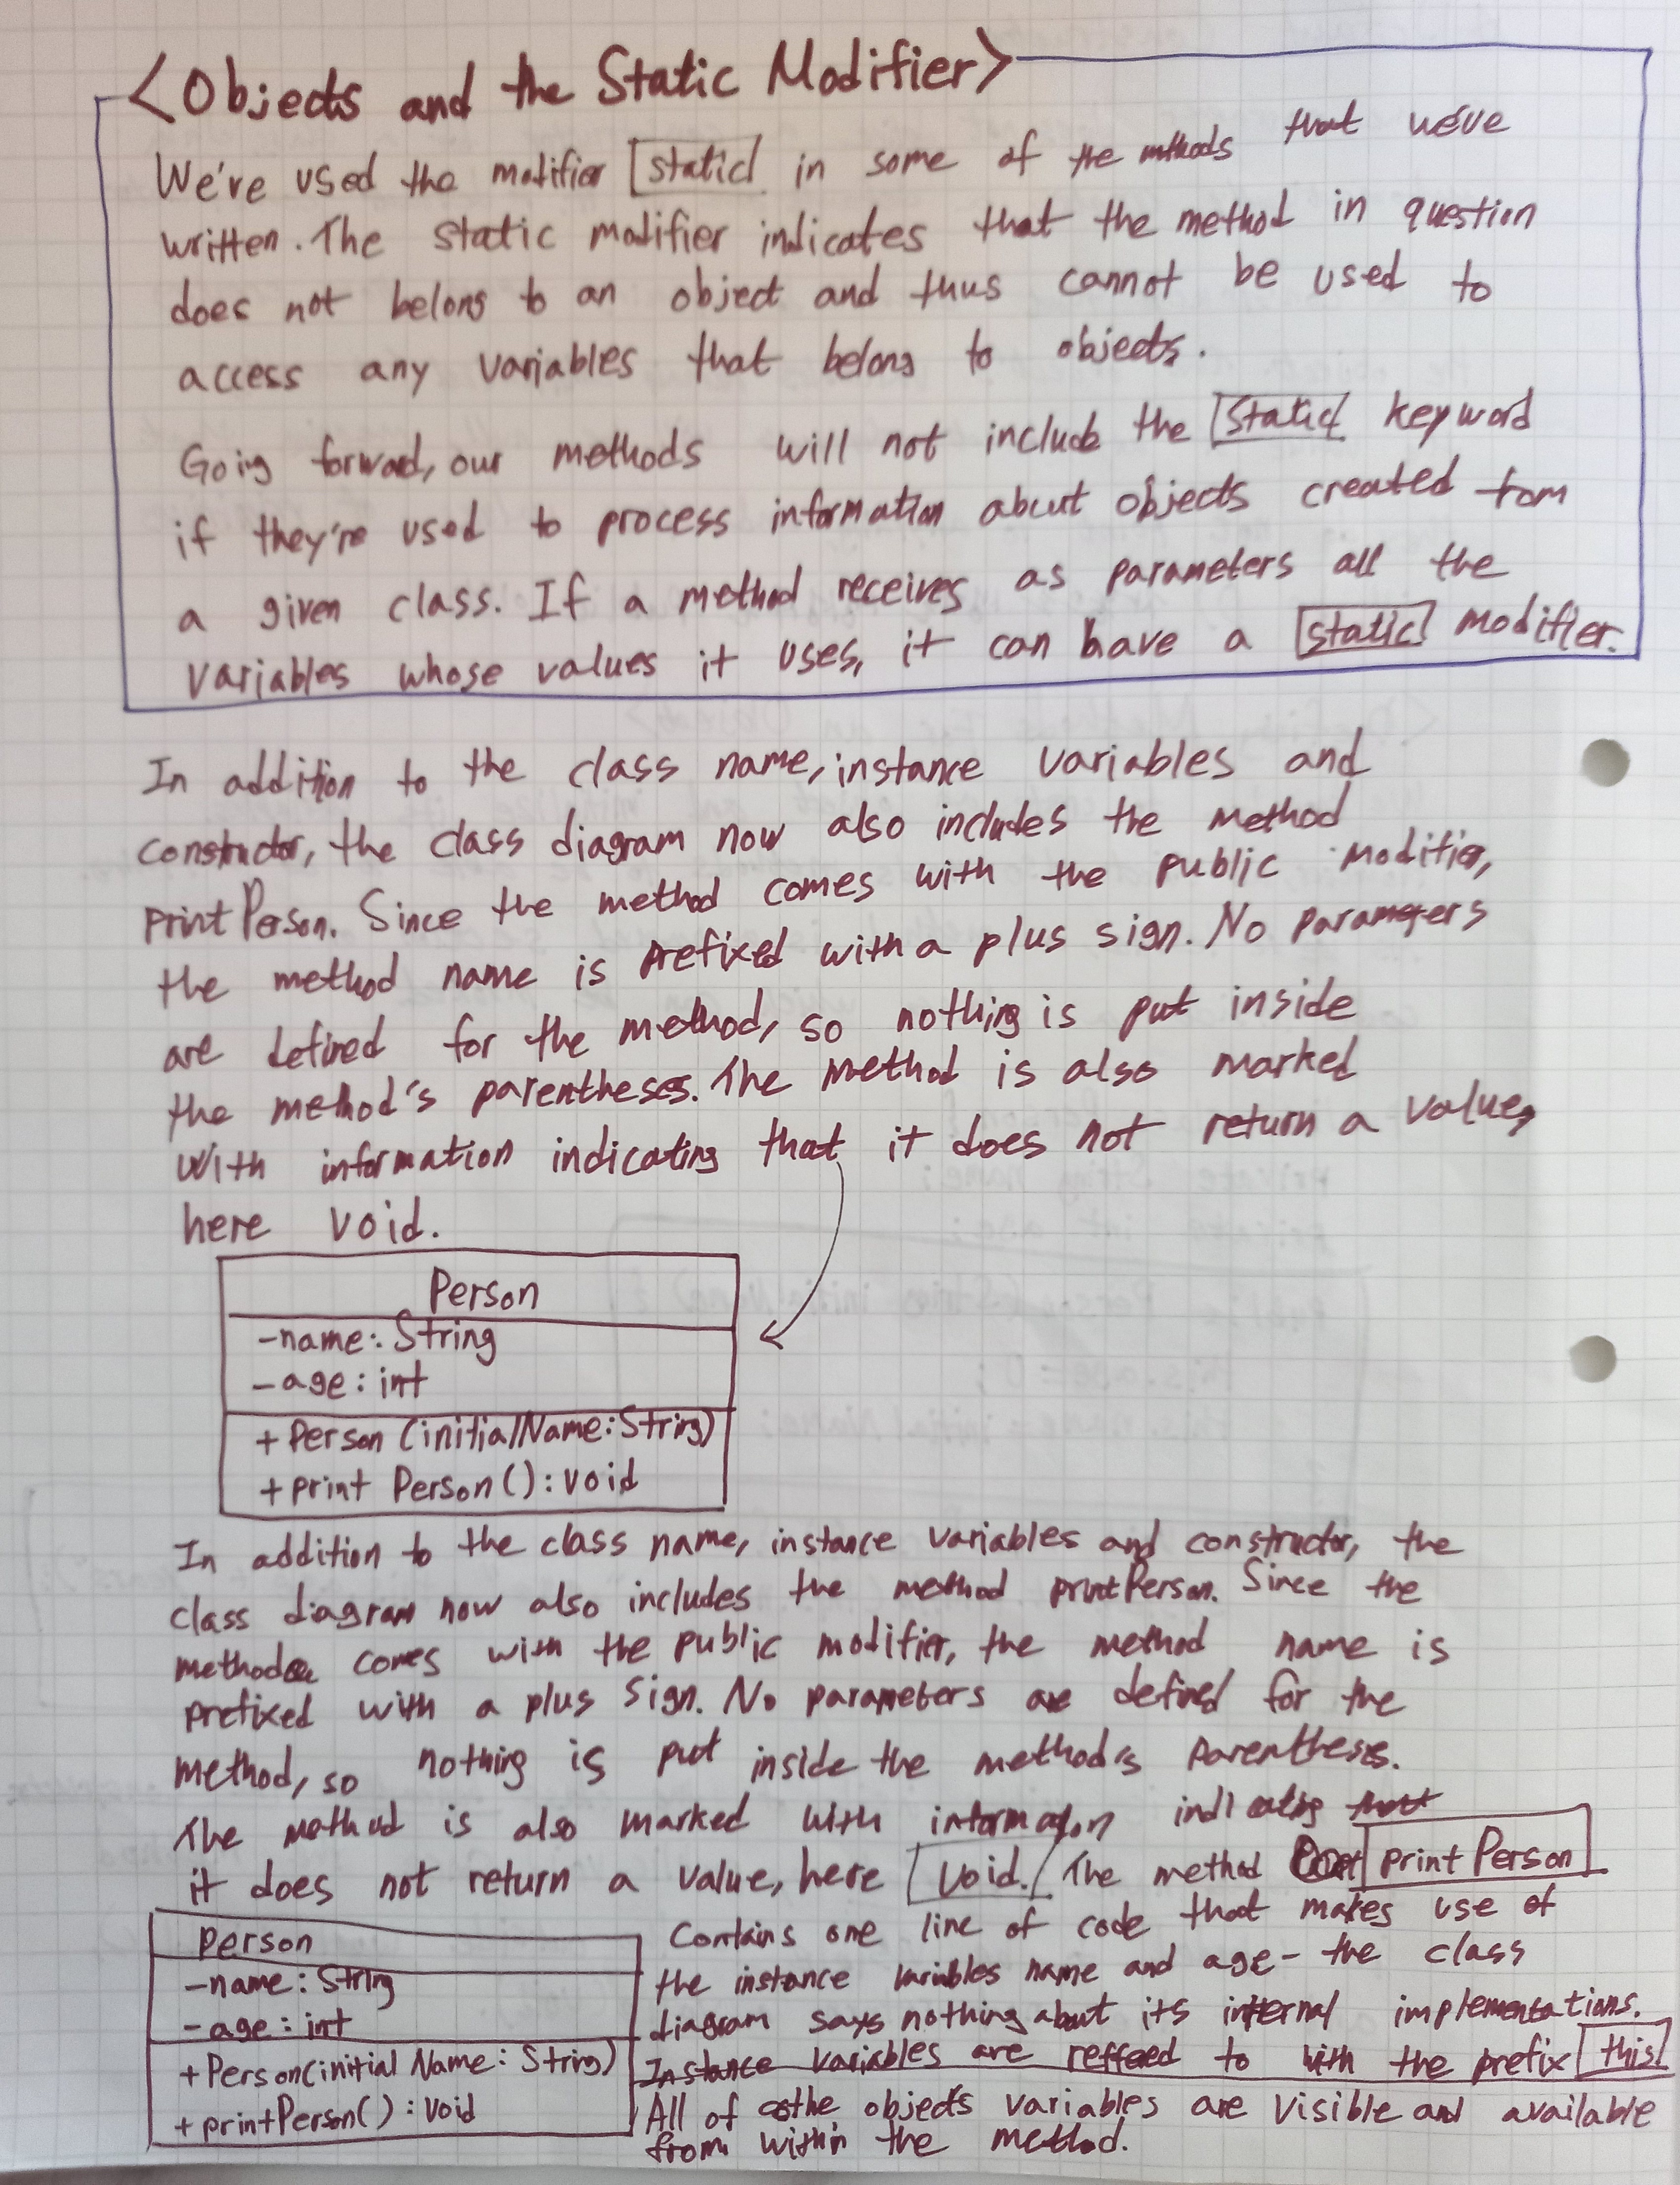 <Objects and the Static Modifier>
We've used the modifier static in some of the methods that we've
written. The static modifier indicates that the method in question
does not belong to an object and thus cannot be used to
access any variables that belong to objects.
Going forward, our methods will not include the static keyword
if they're used to process information about objects created from
a given class. If a method receives as parameters all the
variables whose values it uses, it can have a static modifier.
In addition to the class name, instance variables and
constructor, the class diagram now also includes the method
printPerson. Since the method comes with the public modifier,
the method name is prefixed with a plus sign. No parameters
are defined for the method, so nothing is put inside
the method's parentheses. The method is also marked
with information indicating that it does not return a value,
here void.
Person
-name: String
-age: int
+ Person (initialName: String)
+ print Person(): void
In addition to the class name, instance variables and constructor, the
class diagram now also includes the method printPerson. Since the
method comes with the public modifier, the method name is
prefixed with a plus sign. No parameters are defined for the
method, so nothing is put inside the method's parentheses.
The method is also marked with information indicating that
it does not return a value, here void. The method printPerson
Person
-name: String
-age: int
+Person(initial Name: String)
+printPerson(): void
Contains one line of code that makes use of
the instance variables name and age - the class
diagram says nothing about its internal implementations.
Instance variables are reffeed to with the prefix this
All of the objects variables are visible and available
from within the method.